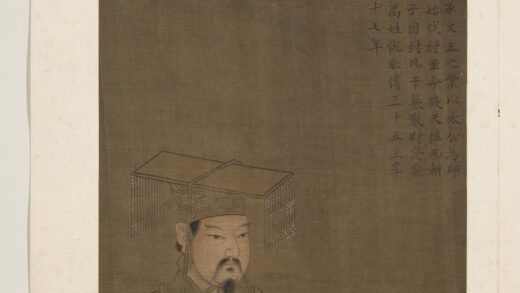 承文王之業以太公為師
始伐紂革命踐天位南朝
子囚封比干墓散財發粟
萬姓悅服傳三十五主享
十七年